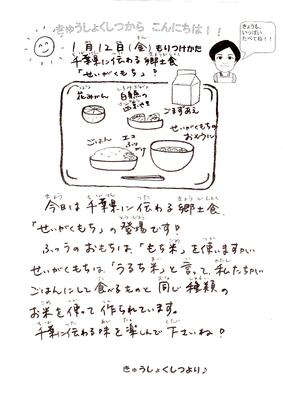 きゅうしょくしつから こんにちは!!
きょうも、
いっぱい
たべてね!!
1月12日(金)もりつけかた
千葉県に伝わる郷土食
「せいがくもち」!
花みかん
白身魚の
ごまずあえ
せいがくもちの
おぞうに
ごはん
今日は千葉県に伝わる郷土食、
「せいがくもち」の登場です!
ふつうのおもちは、「もち米」を使いますが、
せいがくもちは、「うるち米」と言って、私たちが
ごはんにして食べるものと同じ種類の
お米を使って作られています。
千葉に伝わる味を楽しんで下さいね!
きゅうしょくしつより♪